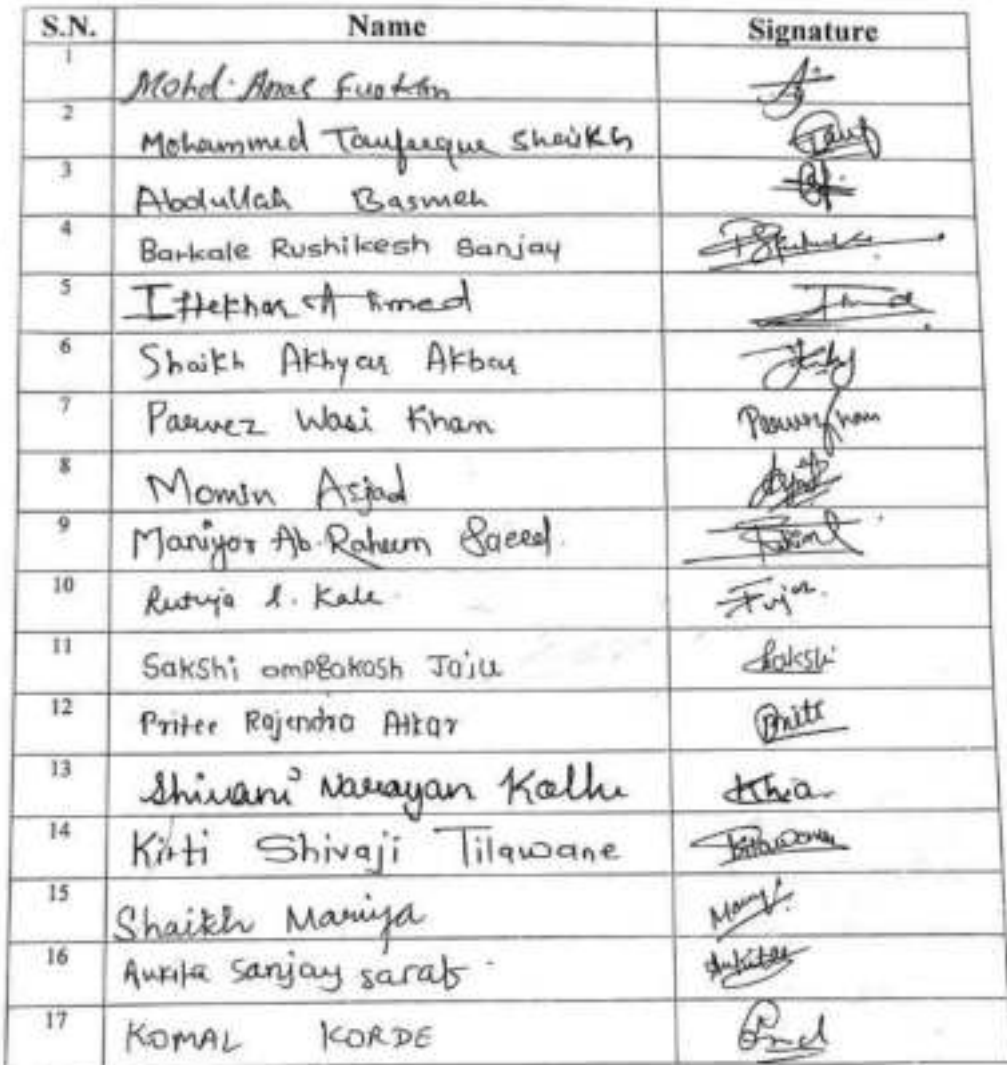 S.N. Name Signature
1 Mohd. Anas Furkan
2 Mohammed Taufeeque Shaikh Tauf
3 Abdullah Basmeh
4 Barkale Rushikesh Sanjay
5 Iftekhar Ahmed
6 Shaikh Akhyar Akbar
7 Parvez Wasi Khan
8 Momin Asjad
9 Maniyar Ab. Raheem Saeed. Rahim
10 Rutuja S. Kale.
11 Sakshi omprakash Jaju Sakshi
12 Pritee Rajendra Atkar Pritee
13 Shivani Narayan Kolhe
14 Kirti Shivaji Tilawane
15 Shaikh Mariya
16 Ankita Sanjay Sarat Ankita
17 KOMAL KORDE